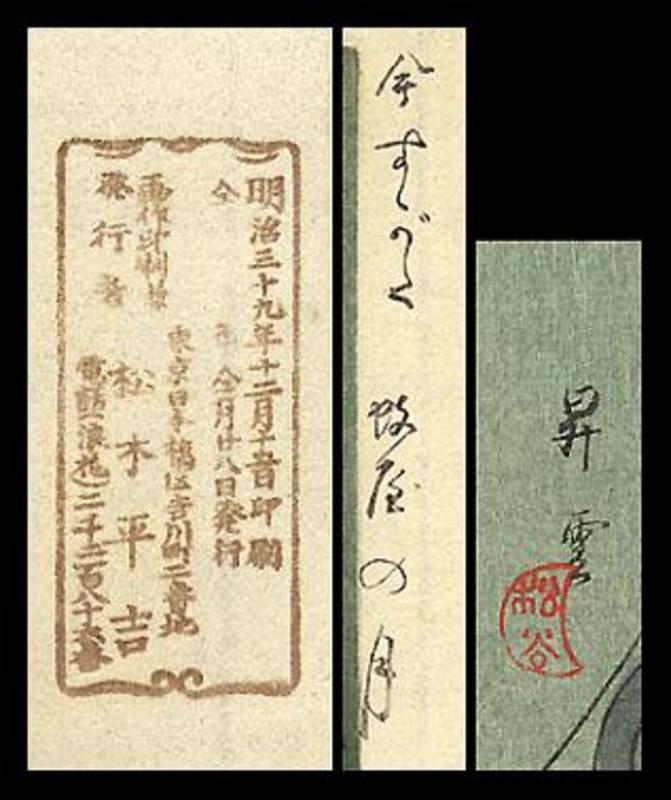 明治三十九年十二月十五日印刷
仝年仝月廿八日発行
東京日本橋区吉川町二番地
画作印刷兼
発行者 松木平吉
電話(浪花)二千二百八十番
今すがた 蚊屋の月
昇雲
松谷